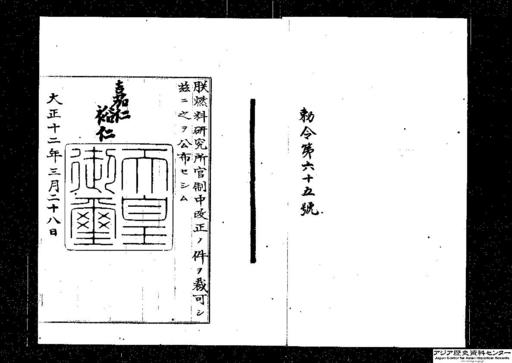 勅令第六十五號
朕燃料研究所官制中改正ノ件ヲ裁可シ
茲ニ之ヲ公布セシム
嘉仁
裕仁
天皇
御璽
大正十二年三月二十八日
アジア歴史資料センター
Japan Center for Asian Historical Records